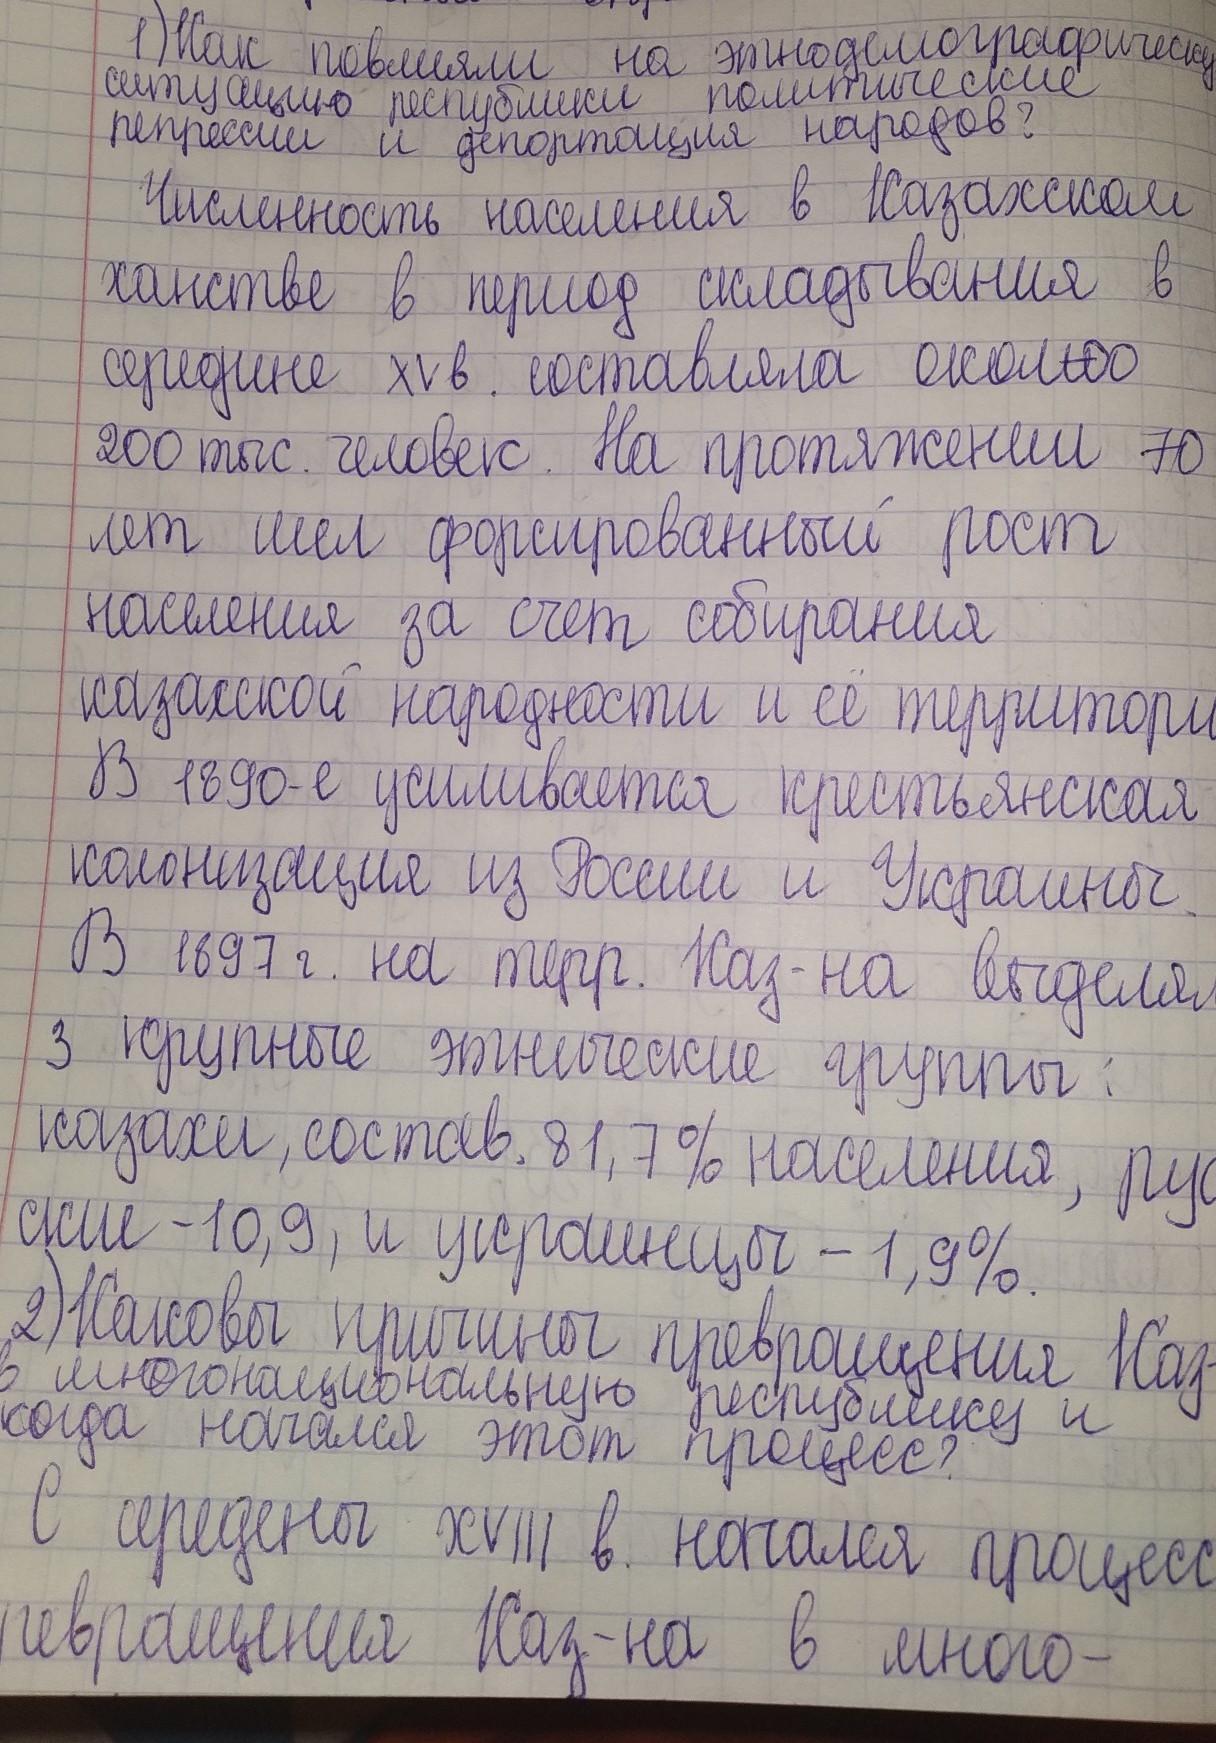 1) Как повлияли на этнодемографическу
ситуацию республики политические
репрессии и депортация народов?
Численность населения в Казахском
ханстве в период складывания в
середине XV в. составляла около
200 тыс. человек. На протяжении 70
лет шел форсированный рост
населения за счет собирания
казахской народности и её территори
В 1890-е усиливается крестьянская
колонизация из России и Украины.
В 1897 г. на терр. Каз-на выделял
3 крупные этнические группы:
казахи, состав. 81,7% населения, рус
ские - 10,9, и украинцы - 1,9%.
2) Каковы причины превращения Каз-
в многонациональную республику и
когда начался этот процесс?
С середены XVIII в. начался процесс
ревращения Каз-на в много-